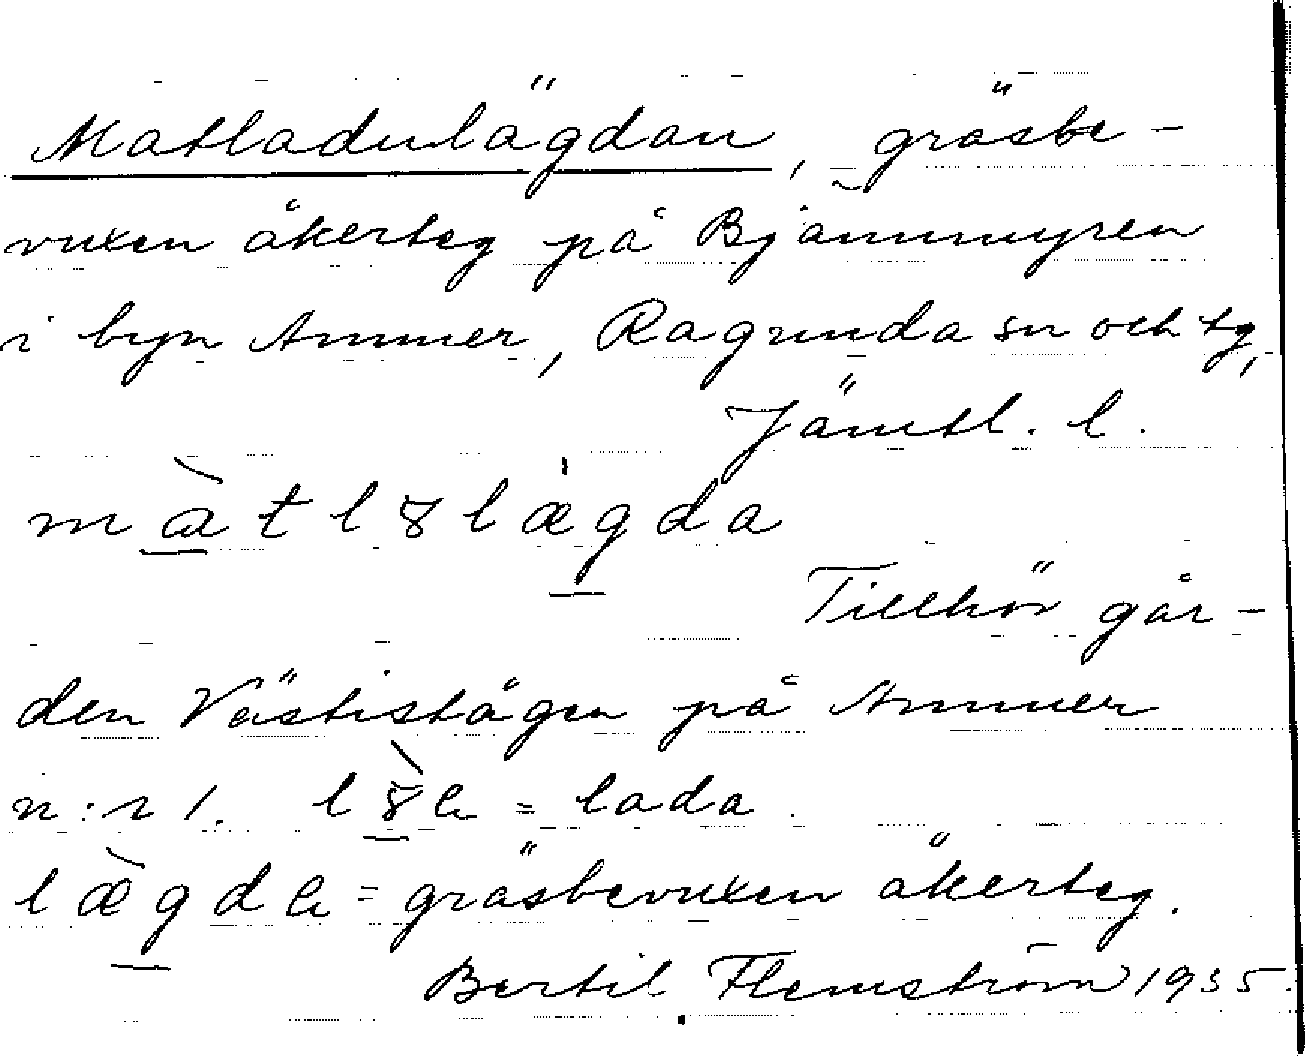 Matladulägdan, gräsbe-
vuxen åkerteg på Bjämmyren
i byn Ammer, Ragunda sn och tg,
Jämtl. l.
màtl8lægda
Tillhör går-
den Västistågen på Ammer
n:r 1. l8̀a = lada.
læ̀gda = gräsbevuxen åkerteg.
Bertil Flemström 1935.